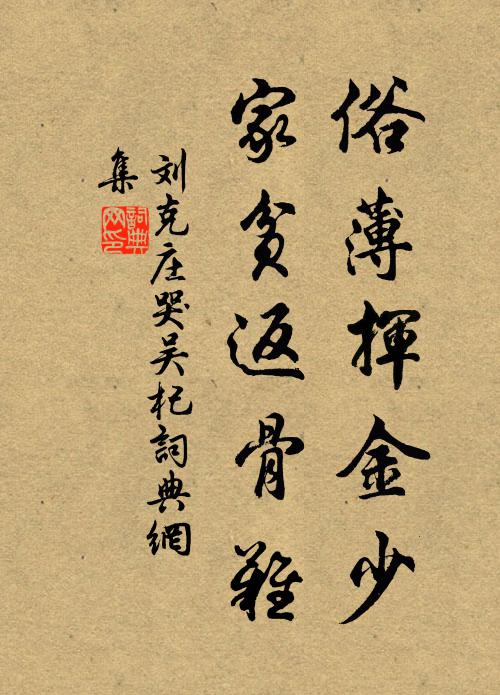 俗薄揮金少
家貧返骨難
刘克庄哭吴杞詞典網
集
詞典网印